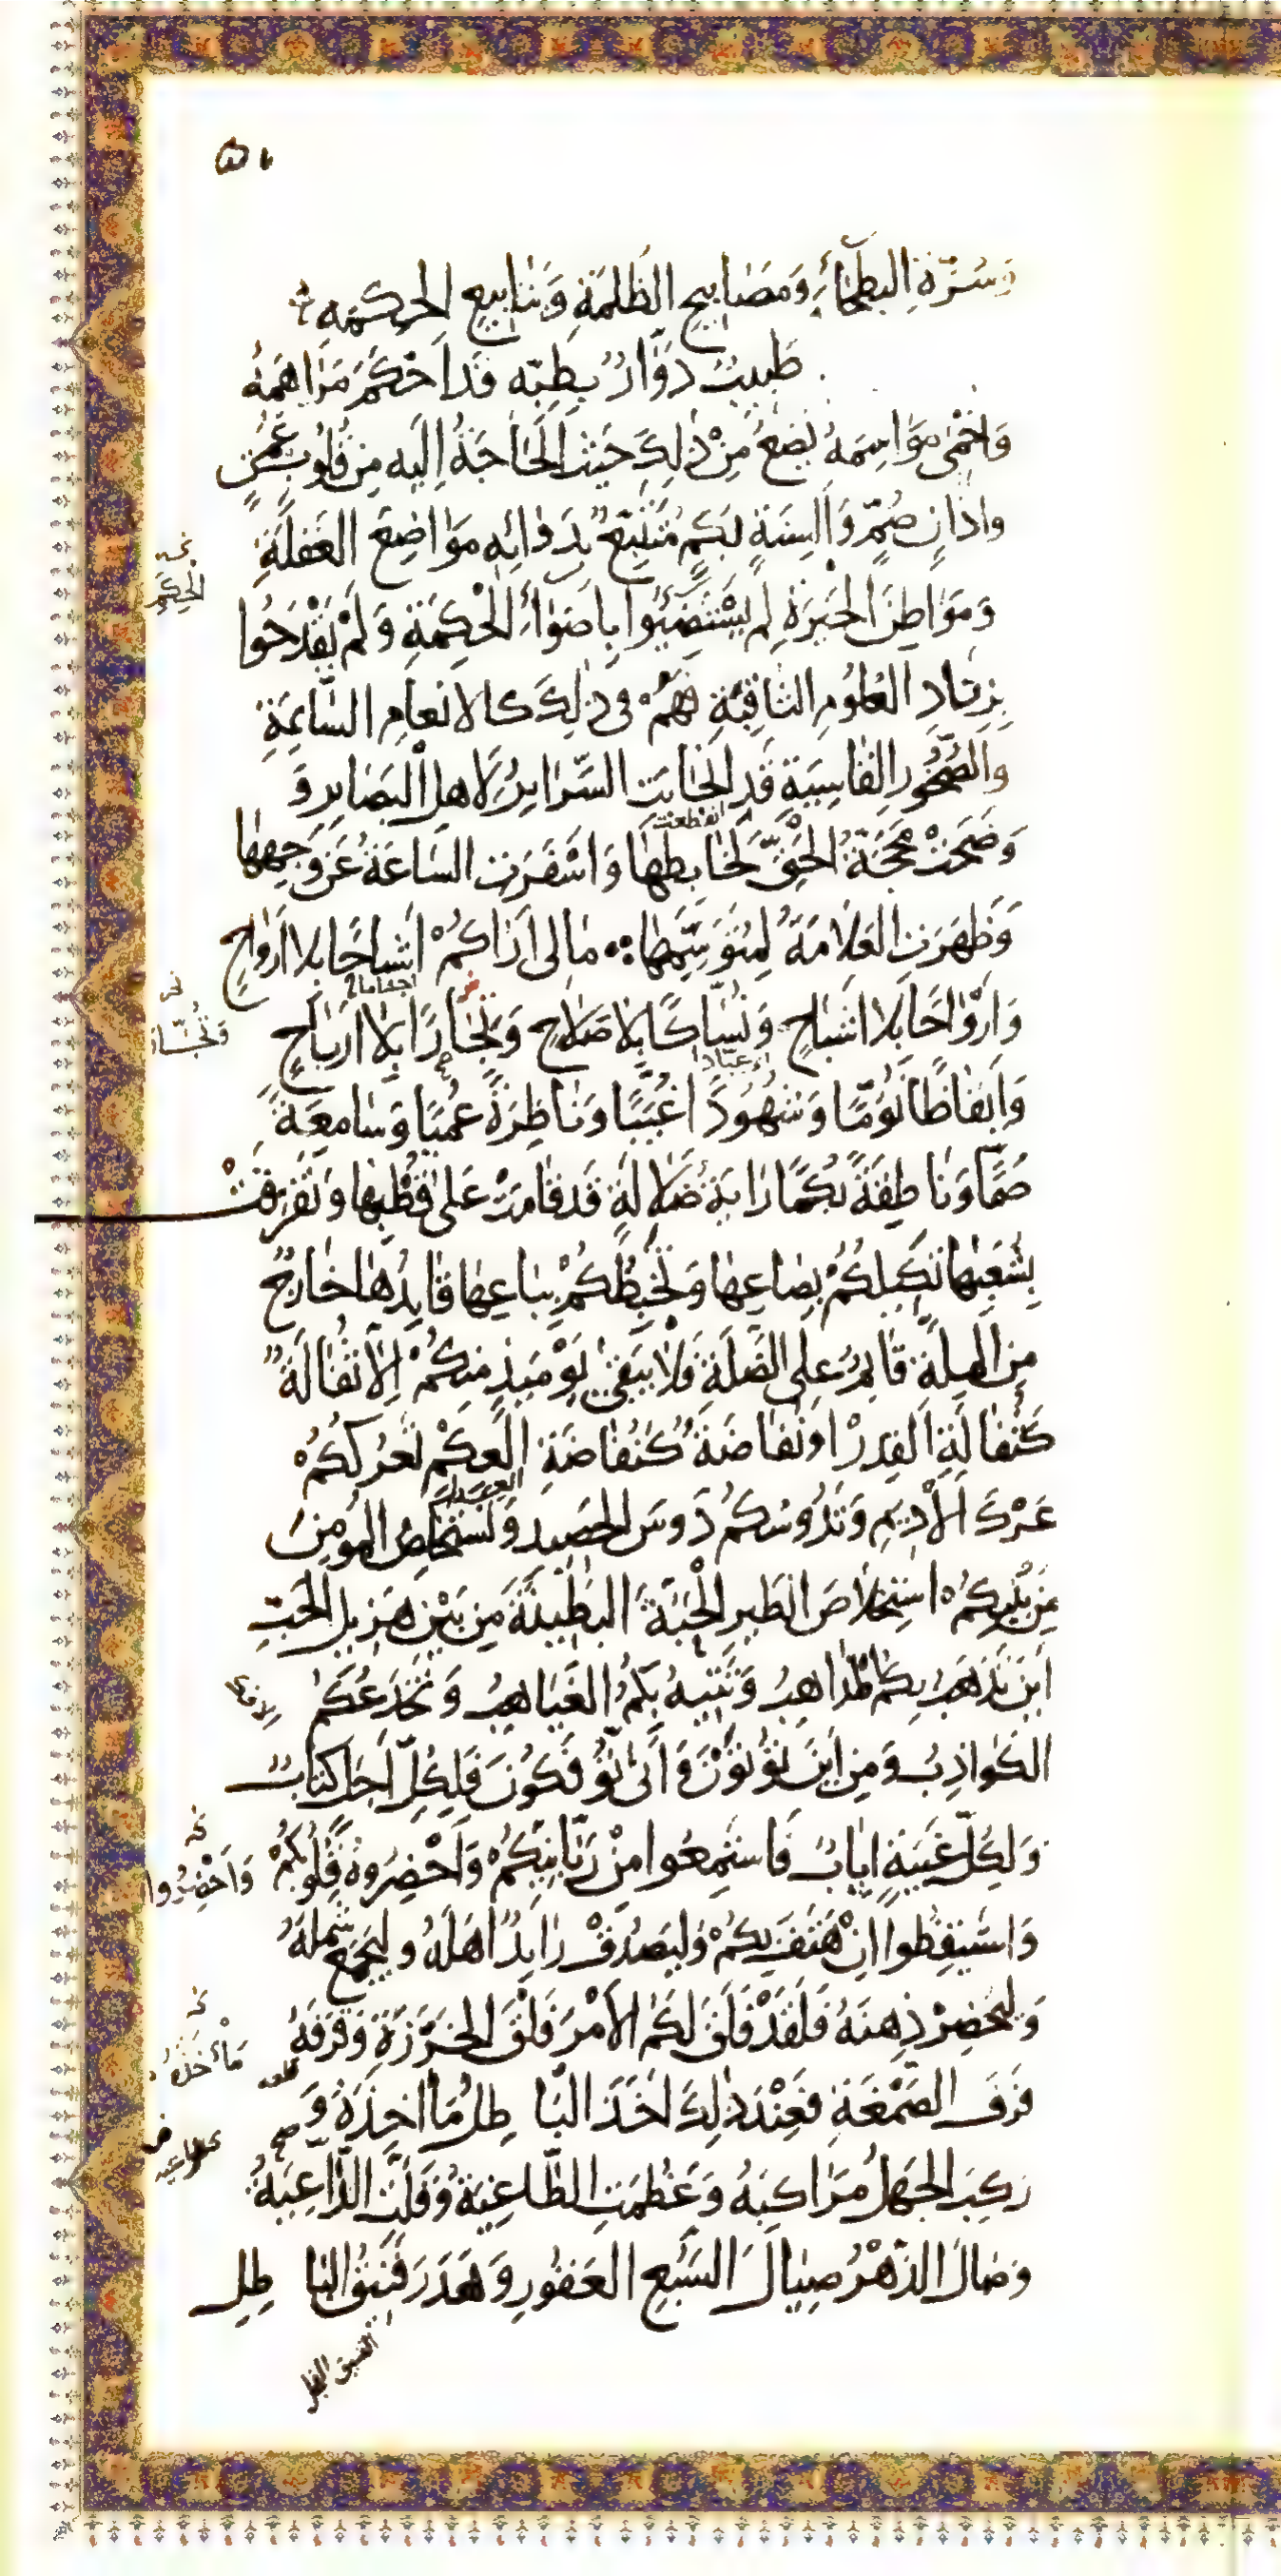 ٥١
وَسُرَّةِ البَطْحَاءِ وَمَصَابِيحِ الظُّلمَةِ وَيَنَابِيعِ الحِكمَهِ
طَبِيبٌ دَوَّارٌ بِطِبِّه قَد اَحْكَمَ مَرَاهِمَهُ
وَاحْمَى مَوَاسِمَهُ يَضَعُ مِنْ ذٰلِكَ حَيثُ الحَاجَةُ اِلَيهِ مِن قُلُوبٍ عُمْيٍ
واذَانٍ صُمٍّ وَالسِنَةٍ بُكمٍ مُتَتَبِّعٌ بِدَوَائِهِ مَوَاضِعَ الغَفلَةِ
نخه
الحِكَمِ
وَمَوَاطِنَ الحَيرَةِ لم يَسْتَضِيئُوا بِاضوَاءِ الحْكِمَةِ وَلَمْ يَقْدَحُوا
بِزِنَادِ العُلُومِ الثَاقِبَةِ فَهُمْ فى ذٰلِكَ كالانعَامِ السَّايِمَةِ
وَالصُّخُورِ القَاسِيَةِ قَدِ انجَابَت السَّرَايِرُ لِاَهلِ الْبَصَايِرِ وَ
انقطعت
وَضَحَتْ مَحَجَّةُ الحَقِّ لِخَابِطِهَا وَاسْفَرَتِ السَاعَةُ عَن وَجهِهَا
وَظَهَرَتِ العَلامَةُ لِمُتَوَسِّمِهَا مالى اَرَاكُمْ اَشبَاحًا بِلا اَروَاحٍ
اجساما
وَاَرْوَاحًا بِلا اَشبَاحٍ وَنُسَّاكًا بِلا صَلَاحٍ وَتُجَارًا بِلَا اَربَاحٍ
نخه
وَتُجَّارًا
اى عبّادا
وَاَيقَاظًا نُوَّمًا وَشُهُودًا غُيَّبًا وَنَاظِرَةً عَميَا وَسَامِعَةً
صَمَّا وَنَاطِقَةً بَكمَا رَايَةُ ضَلالَةٍ قَد قَامَتْ عَلى قُطْبِها وَتَفَرَّقَتْ
بِشُعَبِهَا تَكِيلُكُمْ بِصَاعِهَا وَتَخبِطُكُمْ بِبَاعِهَا قَايِدُهَا خَارِجٌ
مِنَ المِلَّةِ قَايِمٌ عَلى الضَلَّةِ فَلا يَبقَىٰ يَوْمَيِذٍ مِنكُمْ اِلَّا ثُفَالَةٌ
كَثُفَالَةِ القِدرْ اَو نُفَاضَةٌ كَنُفَاضَةِ العِكْمِ تَعرُككُمْ
عَرْكَ الاَديمِ وَتَدُوسُكُم دَوسَ الحصِيدِ وَتَستَخلِصُ المؤمِنَ
مِن بَينِكُمْ استِخلَاصَ الطَيرِ الْحَبَّةَ البَطِينَةَ مِن بَيْنِ هَزِيلِ الحَبِّ
اَينَ تَذهَبُ بِكمُ المَذاهِبُ وَتَتِيهُ بِكُمُ الغَيَاهِبُ وَتَخدَعُكُمْ
الكَواذِبُ وَمِن اَينَ تُؤتَوْنَ وَاَنّى تُؤفَكُونَ فَلِكُلِّ اَجَلٍ كتَابٌ
وَلِكُلِّ غَيبَةٍ اِيَابٌ فَاستَمِعُوا مِنْ رَبَّانِيِّكُمْ وَاَحْضِرُوهُ قُلُوبَكُمْ
نخه
وَاَحْضِرُوا
وَاستَيقِظُوا انْ هَتَفَ بِكُمْ وَليَصدُقْ رَايِدٌ اَهلَهُ وليَجمَع شَملَهُ
وَليُحضِرْ ذِهنَهُ فَلَقَدْ فَلَقَ لَكُم الاَمْرَ فَلْقَ الخَرَزَةِ وَقَرَفَهُ
نخه
مَأخَذَهُ
قَرَفَ الصَمْغَةِ فَعِنْدَ ذٰلِكَ اَخَذَ البَا طِلُ مَآخِذَهُ وَ
رَكِبَ الجَهلُ مَرَاكِبَهُ وَعَظُمَتِ الطَّاغِيَةُ وَقَلَّتِ الدَّاعِيَةُ
صح
وَصَالَ الدَّهْرُ صِيَالَ السَبُعِ العَقُورِ وَهَدَرَ فَنِيقُ البَا طِلِ
الفنيق الفحل